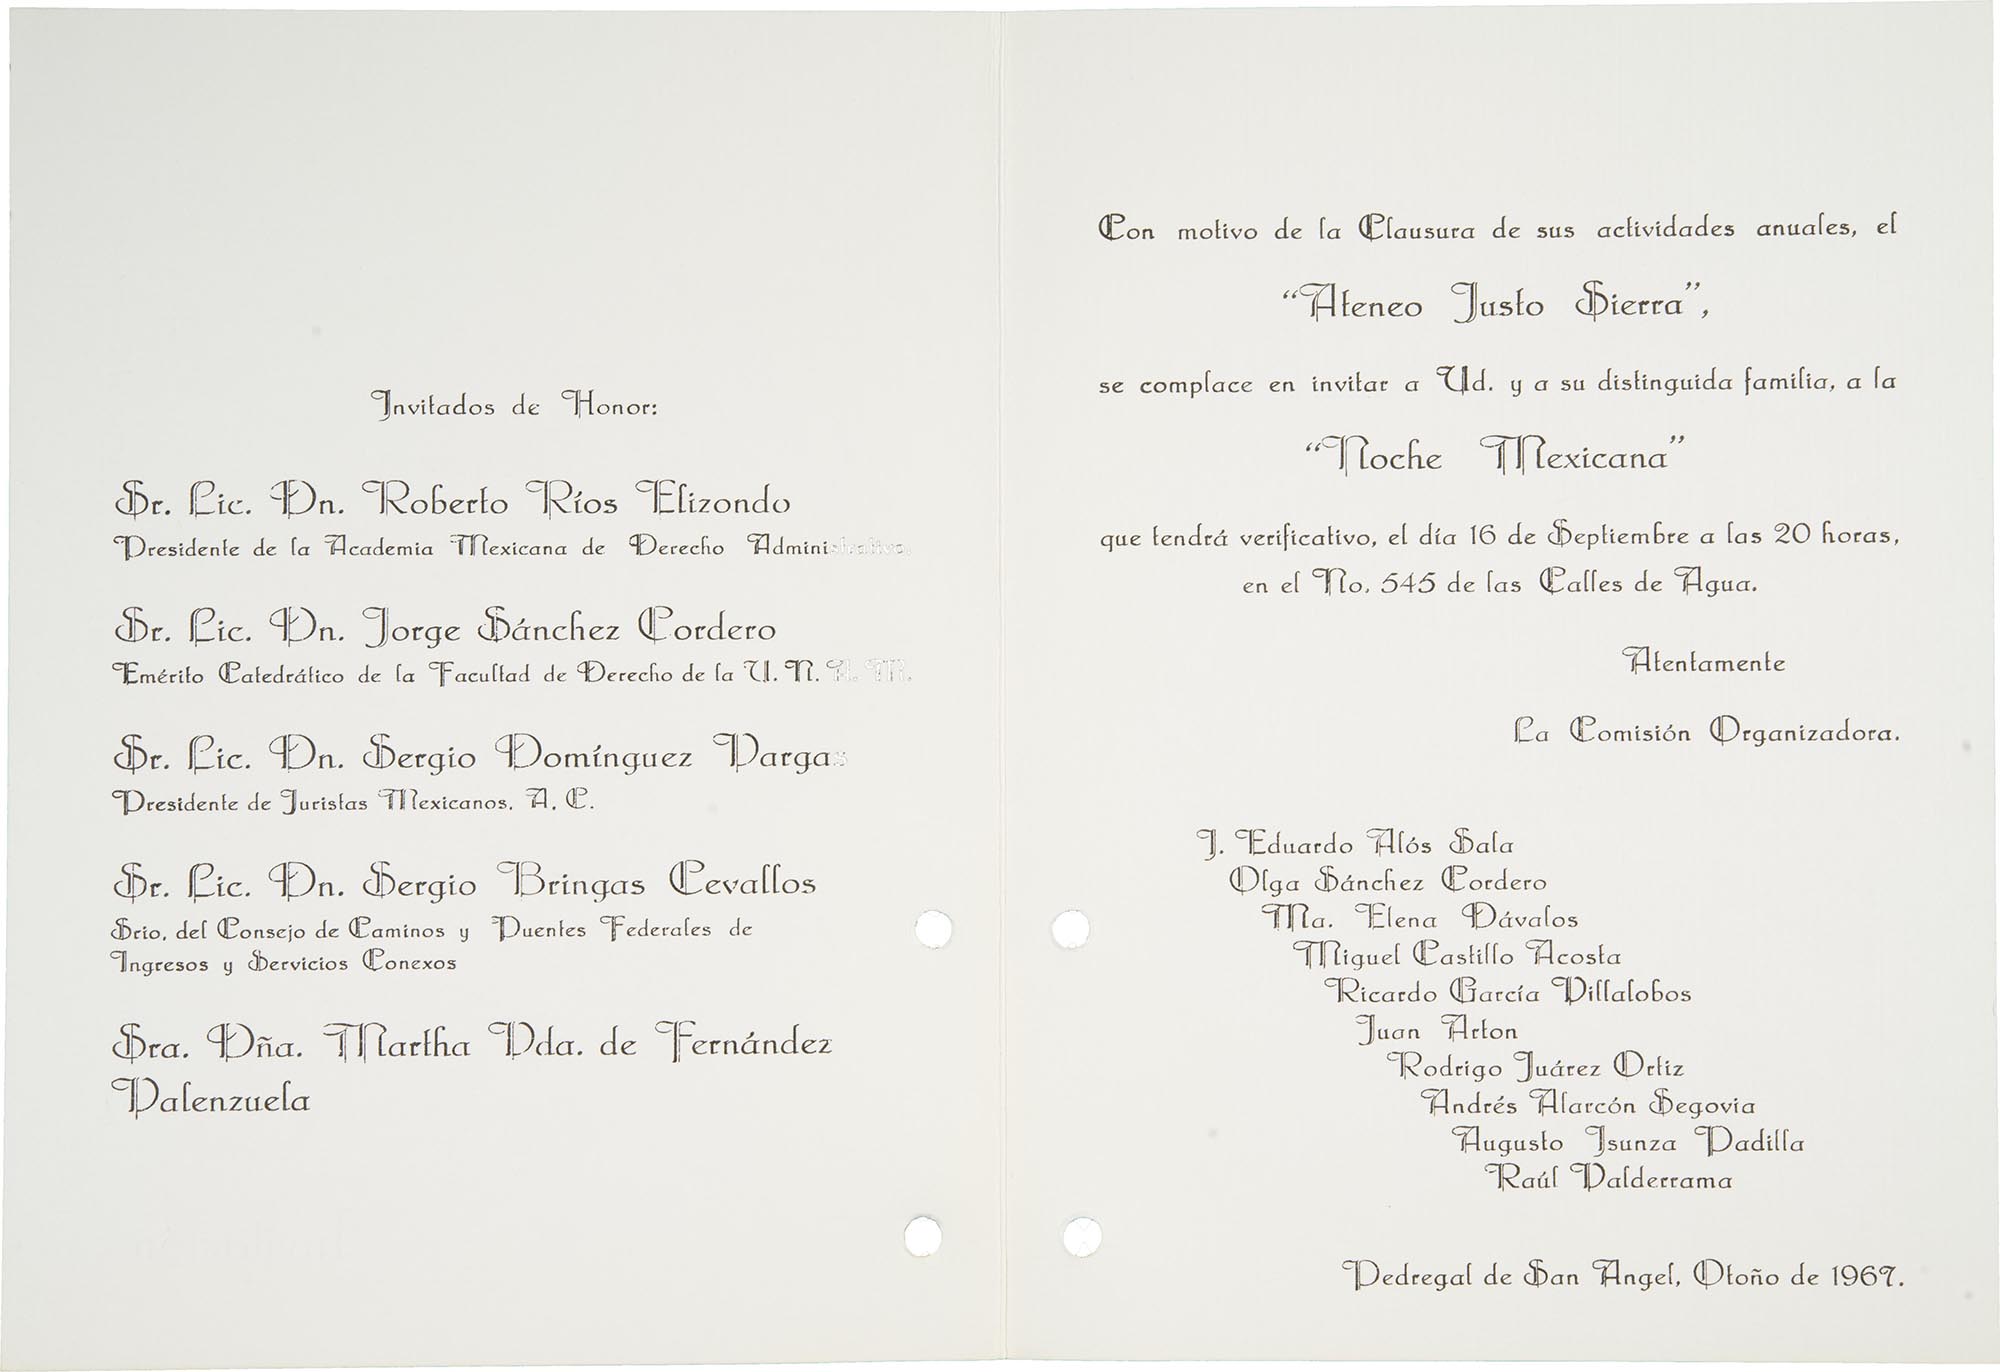 Invitados de Honor:
Sr. Lic. Dn. Roberto Ríos Elizondo
Presidente de la Academia Mexicana de Derecho Administrativo.
Sr. Lic. Dn. Jorge Sánchez Cordero
Emérito Catedrático de la Facultad de Derecho de la U. N. A. M.
Sr. Lic. Dn. Sergio Domínguez Vargas
Presidente de Juristas Mexicanos, A. C.
Sr. Lic. Dn. Sergio Bringas Cevallos
Srio. del Consejo de Caminos y Puentes Federales de
Ingresos y Servicios Conexos
Sra. Dña. Martha Vda. de Fernández
Valenzuela
Con motivo de la Clausura de sus actividades anuales, el
"Ateneo Justo Sierra",
se complace en invitar a Ud. y a su distinguida familia, a la
"Noche Mexicana"
que tendrá verificativo, el día 16 de Septiembre a las 20 horas,
en el No. 545 de las Calles de Agua.
Atentamente
La Comisión Organizadora.
J. Eduardo Alós Sala
Olga Sánchez Cordero
Ma. Elena Dávalos
Miguel Castillo Acosta
Ricardo García Villalobos
Juan Arton
Rodrigo Juárez Ortiz
Andrés Alarcón Segovia
Augusto Isunza Padilla
Raúl Valderrama
Pedregal de San Angel, Otoño de 1967.